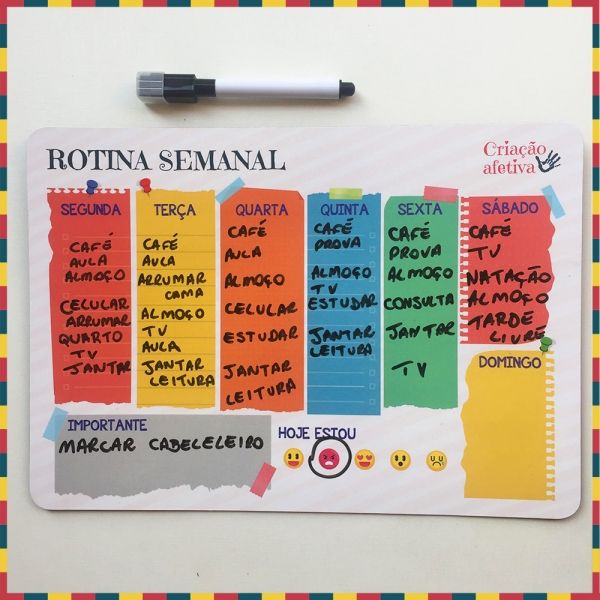 ROTINA SEMANAL
Criação
afetiva
SEGUNDA
CAFÉ
AULA
ALMOÇO
CELULAR
ARRUMAR
QUARTO
TV
JANTAR
TERÇA
CAFÉ
AULA
ARRUMAR
CAMA
ALMOÇO
TV
AULA
JANTAR
LEITURA
QUARTA
CAFÉ
AULA
ALMOÇO
CELULAR
ESTUDAR
JANTAR
LEITURA
QUINTA
CAFÉ
PROVA
ALMOÇO
TV
ESTUDAR
JANTAR
LEITURA
SEXTA
CAFÉ
PROVA
ALMOÇO
CONSULTA
JANTAR
TV
SÁBADO
CAFÉ
TV
NATAÇÃO
ALMOÇO
TARDE
LIVRE
DOMINGO
IMPORTANTE
MARCAR CABELELEIRO
HOJE ESTOU